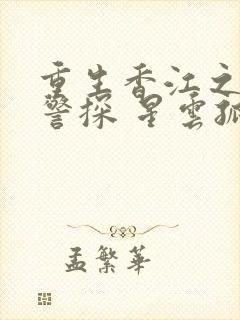 重生香江之
警探 星雲孤
孟繁華